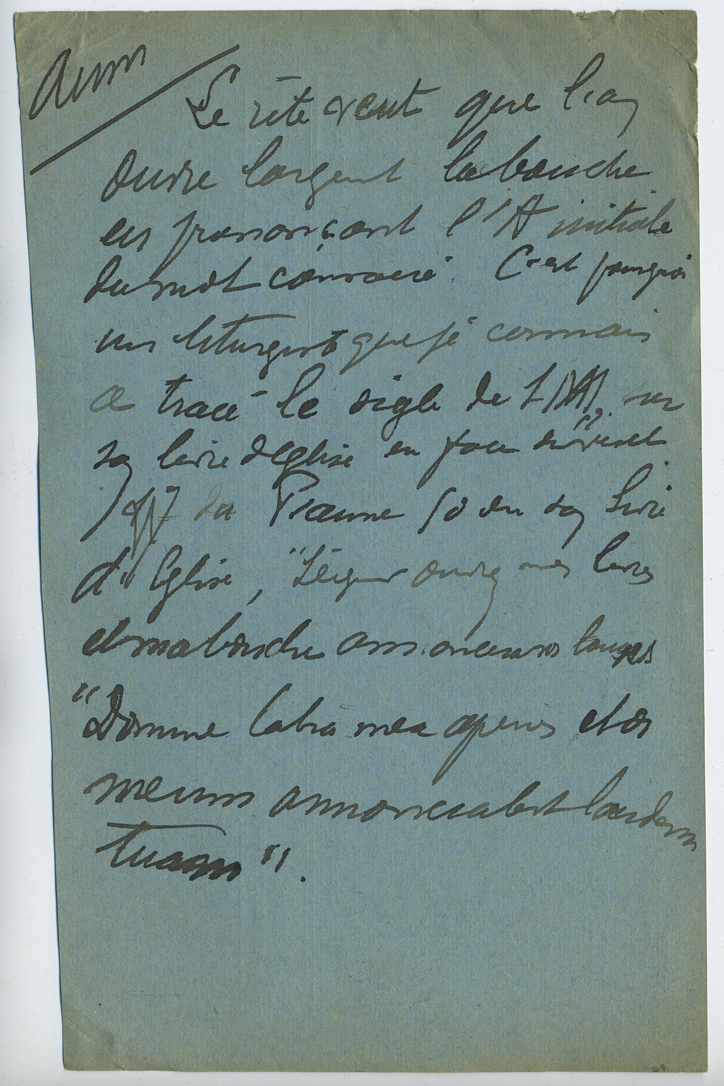 Aum
Le rite veut que l'on
ouvre largent la bouche
en prononçant l'A initiale
du mot consacré. C'est pourquoi
un liturgiste que je connais
a tracé le sigle de l' sur
son livre d'Eglise en face du verset
17 du Psaume 50 du son livre
d'Eglise, "Seigneur ouvrez mes lèvres
et ma bouche annoncera vos louanges
"Domine labra mea aperies et os
meum annonciabit laudem
tuam".